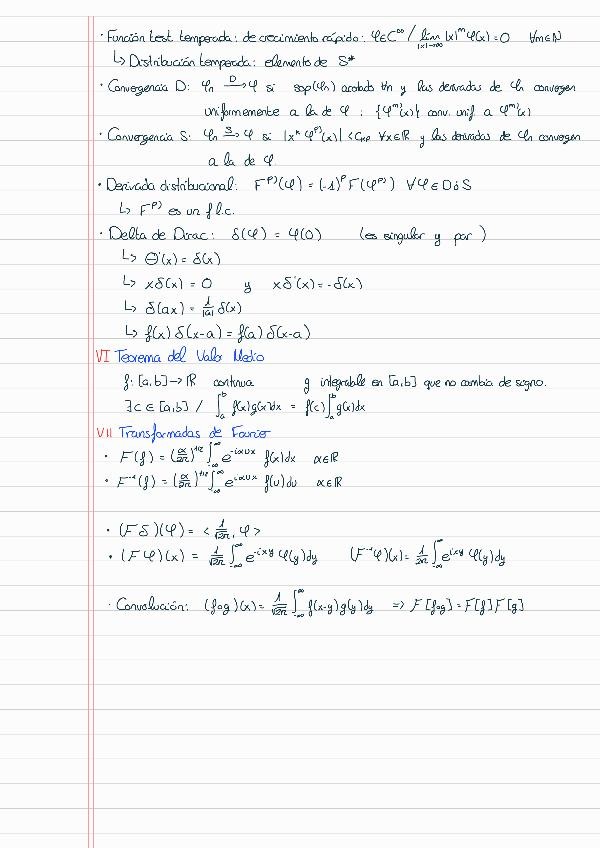 · Función test temperada: de crecimiento rápido: φ∈C^∞ / lim_{|x|→∞} |x|^m φ(x) = 0 ∀m∈N
↳ Distribución temperada: elemento de S*
· Convergencia D: φn →^D φ si sop(φn) acotado ∀n y las derivadas de φn convergen
uniformemente a la de φ : {φ^m)(x)} conv. unif. a φ^m)(x)
· Convergencia S: φn →^S φ si |x^k φ^p)(x)| < C_{k,p} ∀x∈R y las derivadas de φn convergen
a la de φ.
· Derivada distribucional: F^p)(φ) = (-1)^p F(φ^p)) ∀φ∈D ó S
↳ F^p) es un f.l.c.
· Delta de Dirac: δ(φ) = φ(0) (es singular y par)
↳ Θ'(x) = δ(x)
↳ xδ(x) = 0 y xδ'(x) = -δ(x)
↳ δ(ax) = 1/|a| δ(x)
↳ f(x) δ(x-a) = f(a) δ(x-a)
VI Teorema del Valor Medio
f: [a,b] → R continua g integrable en [a,b] que no cambia de signo.
∃c ∈ [a,b] / ∫_a^b f(x)g(x)dx = f(c) ∫_a^b g(x)dx
VII Transformadas de Fourier
· F(f) = (α/2π)^{1/2} ∫_{-∞}^∞ e^{-iαux} f(x)dx α∈R
· F^{-1}(f) = (α/2π)^{1/2} ∫_{-∞}^∞ e^{-iαux} f(u)du α∈R
· (Fδ)(φ) = < 1/√2π, φ >
· (Fφ)(x) = 1/√2π ∫_{-∞}^∞ e^{-ixy} φ(y)dy (F^{-1}φ)(x) = 1/2π ∫_{-∞}^∞ e^{ixy} φ(y)dy
· Convolución: (fog)(x) = 1/√2π ∫_{-∞}^∞ f(x-y)g(y)dy => F[fog] = F[f] F[g]